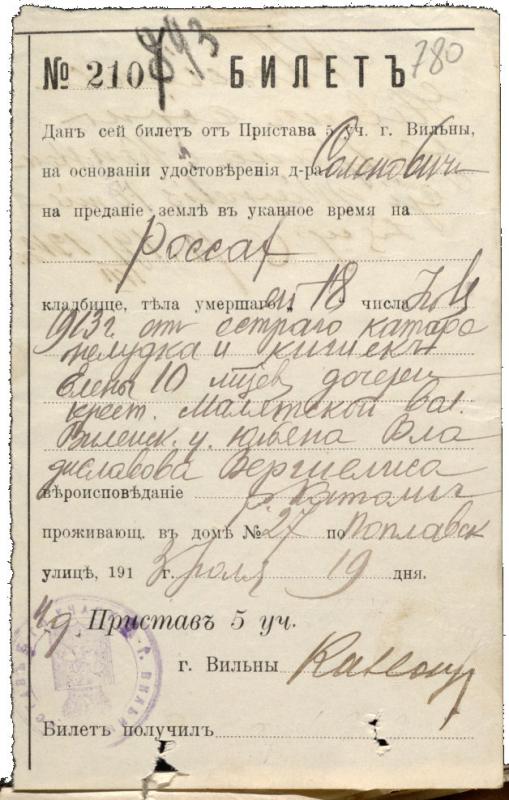 780
893
№ 210 БИЛЕТЪ
Данъ сей билетъ отъ Пристава 5 уч. г. Вильны,
на основаніи удостовѣренія д-ра
на преданіе землѣ въ указное время на
Россах
кладбище, тѣла умершаго 18 числа
913г. от остраго катара
желудка и кишекъ
Елены 10 дочери
крест. Малятской вол.
Виленск. у. Вла
диславова Вергиелиса
вѣроисповѣданіе
проживающ. въ домѣ № 27 по Поплавск
улицѣ, 191 3 г. 19 дня.
Приставъ 5 уч.
г. Вильны
Билетъ получилъ